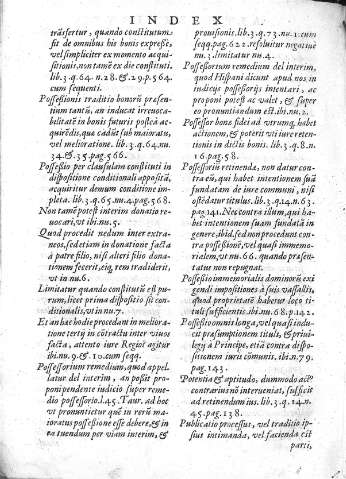 INDEX
trāsfertur, quando constitutum
fit de omnibus his bonis expresè,
vel simpliciter ex momento acqui-
sitionis, non tamē ex die constituti.
lib.3.q.64.n.28.&.29.p.564.
cum sequenti.
Possessionis traditio bonorū præsen-
tium tantū, an inducat irrevoca-
bilitatē in bonis futuris posteà ac-
quirēdis, qua cadūt sub maioratu,
vel melioratione. lib.3.q.64.nu.
34.&.35.pag.566.
Possessio per clausulam constituti in
dispositione conditionali appositā,
acquiritur demum conditione im-
pleta. lib.3.q.65.nu.4.pag.568.
Non tamē potest interim donatio re-
vocari, vt ibi nu.5.
Quod procedit nedum inter extra-
neos, sed etiam in donatione facta
à patre filio, nisi alteri filio dona-
tionem fecerit, eiq, rem tradiderit,
vt in nu.6.
Limitatur quando constitutū est pu-
rum, licet prima dispositio sit con-
ditionalis, vt in nu.7.
Et an hæc hodie procedam in meliora-
tione tertij in cōtractu inter viuos
facta, attento iure Regio? agitur
ibi nu.9.& 10. cum seqq.
Possessorium remedium, quod appel-
latur del interim, an possit pro-
poni pendente iudicio super reme-
dio possessorio. l.45. Taur. ad hoc
vt pronuntietur quē in rerū ma-
ioratus possessione esse debere, & in
ea tuendum per viam interim, &
prouisionis. lib.3.q.73.nu.1.cum
seqq.pag.622. resoluitur negotiue
nu.3. limitatur nu.4.
Possessorium remedium del interim,
quod Hispani dicunt apud nos in
indicijs possessorijs intentari, ac
proponi potest ac valet, & super
eo pronuntiandum est. ibi nu.2.
Possessor bona fidei ad vtrumq, habet
actionem, & poterit vti iure reten-
tionis in dictis bonis. lib.3.q.8.n.
16.pag.58.
Possessorij retinenda, non datur con-
tra eū, qui habet intentionem suā
fundatam de iure communi, nisi
ostēdat titulus. lib.3.q.14.n.63.
pag.141. Nec contra illum, qui ha-
bet intentionem suam fundatā in
genere. ibid. sed non procedunt con-
tra possessionē, vel quasi immemo-
rialem, vt nu.66. quando præsen-
tatur non repugnat.
Possessio immemorialis dominorū exi-
gendi impositiones à suis vassallis,
quod proprietatē habetur loco ti-
tuli sufficientis. ibi.nu.68.p.142.
Possessio omni longa, vel quasi indu-
cit præsumptionem tituli, & priui-
legij à Principe, etiā contra dispo-
sitionem iuris cōmunis, ibi.n.79.
pag.143.
Potentia & aptitudo, dummodo act⁹
contrarius nō interueniat, sufficit
ad retinendum ius. lib.3.q.14.n.
45.pag.138.
Publicatio processus, vel traditio ip-
sius intimanda, vel facienda est
parti,